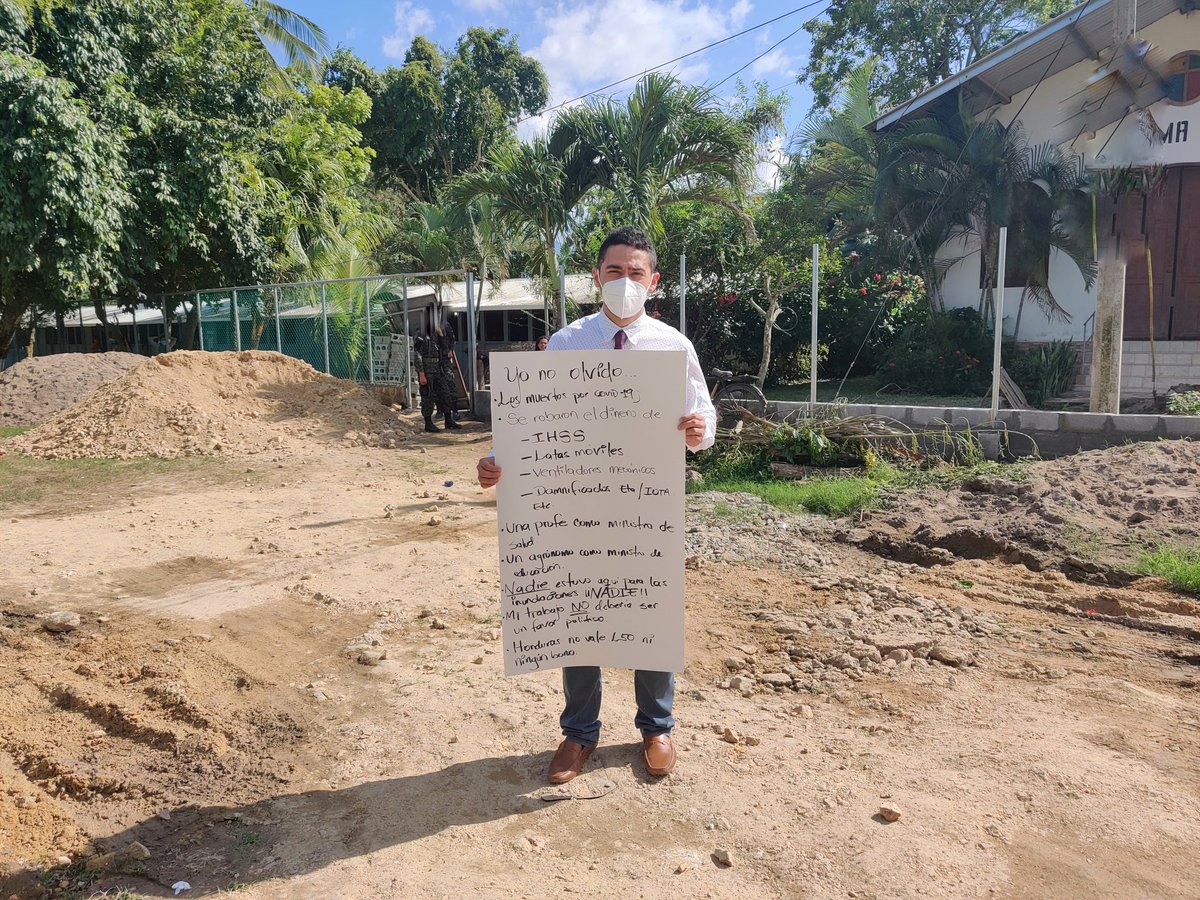 Yo no olvido...
• Los muertos por covid-19
• Se robaron el dinero de
- IHSS
- Latas moviles
- Ventiladores mecánicos
- Damnificados Eta/IOTA
Etc
• Una profe como ministra de
salud
• Un agrónomo como ministro de
educación.
Nadie estuvo aquí para las
inundaciones ¡¡NADIE!!
• Mi trabajo NO debería ser
un favor político
• Honduras no vale L50 ni
ningún bono.
MA